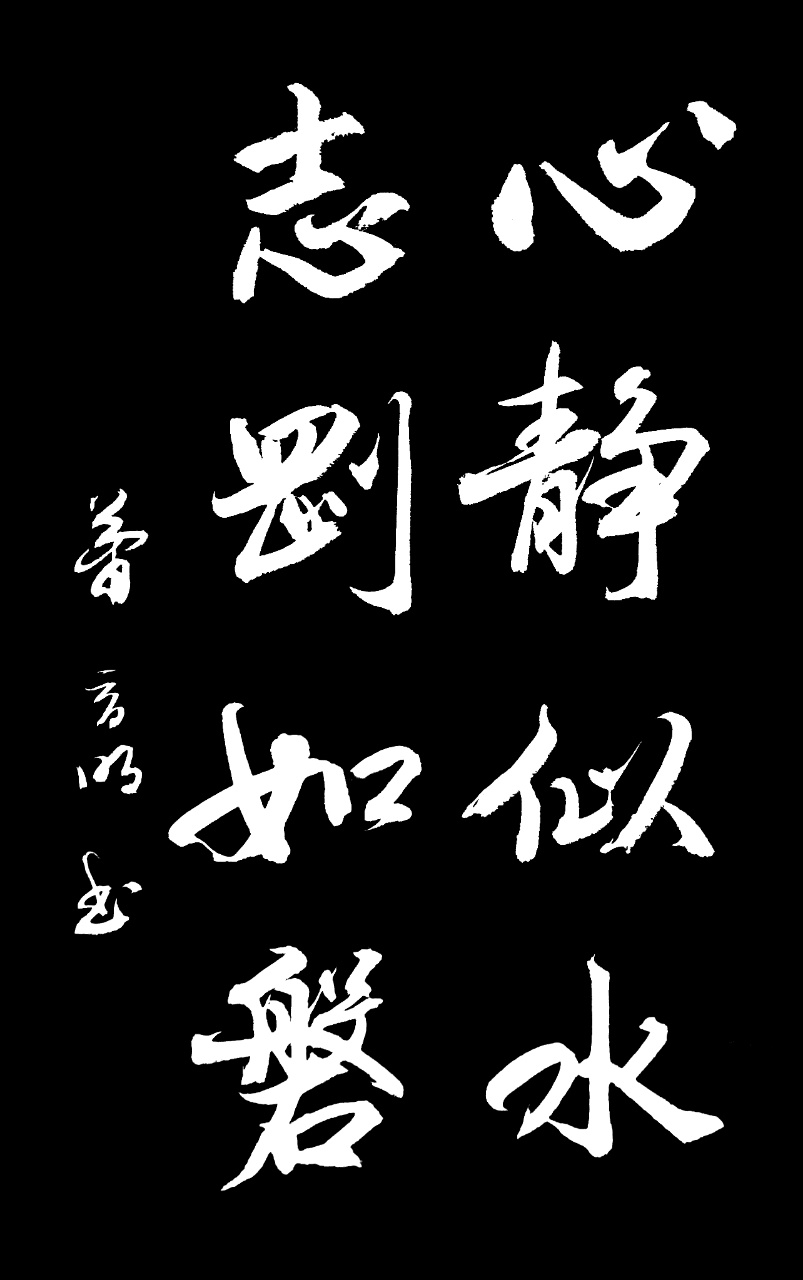 心静似水
志剛如磐
音明书